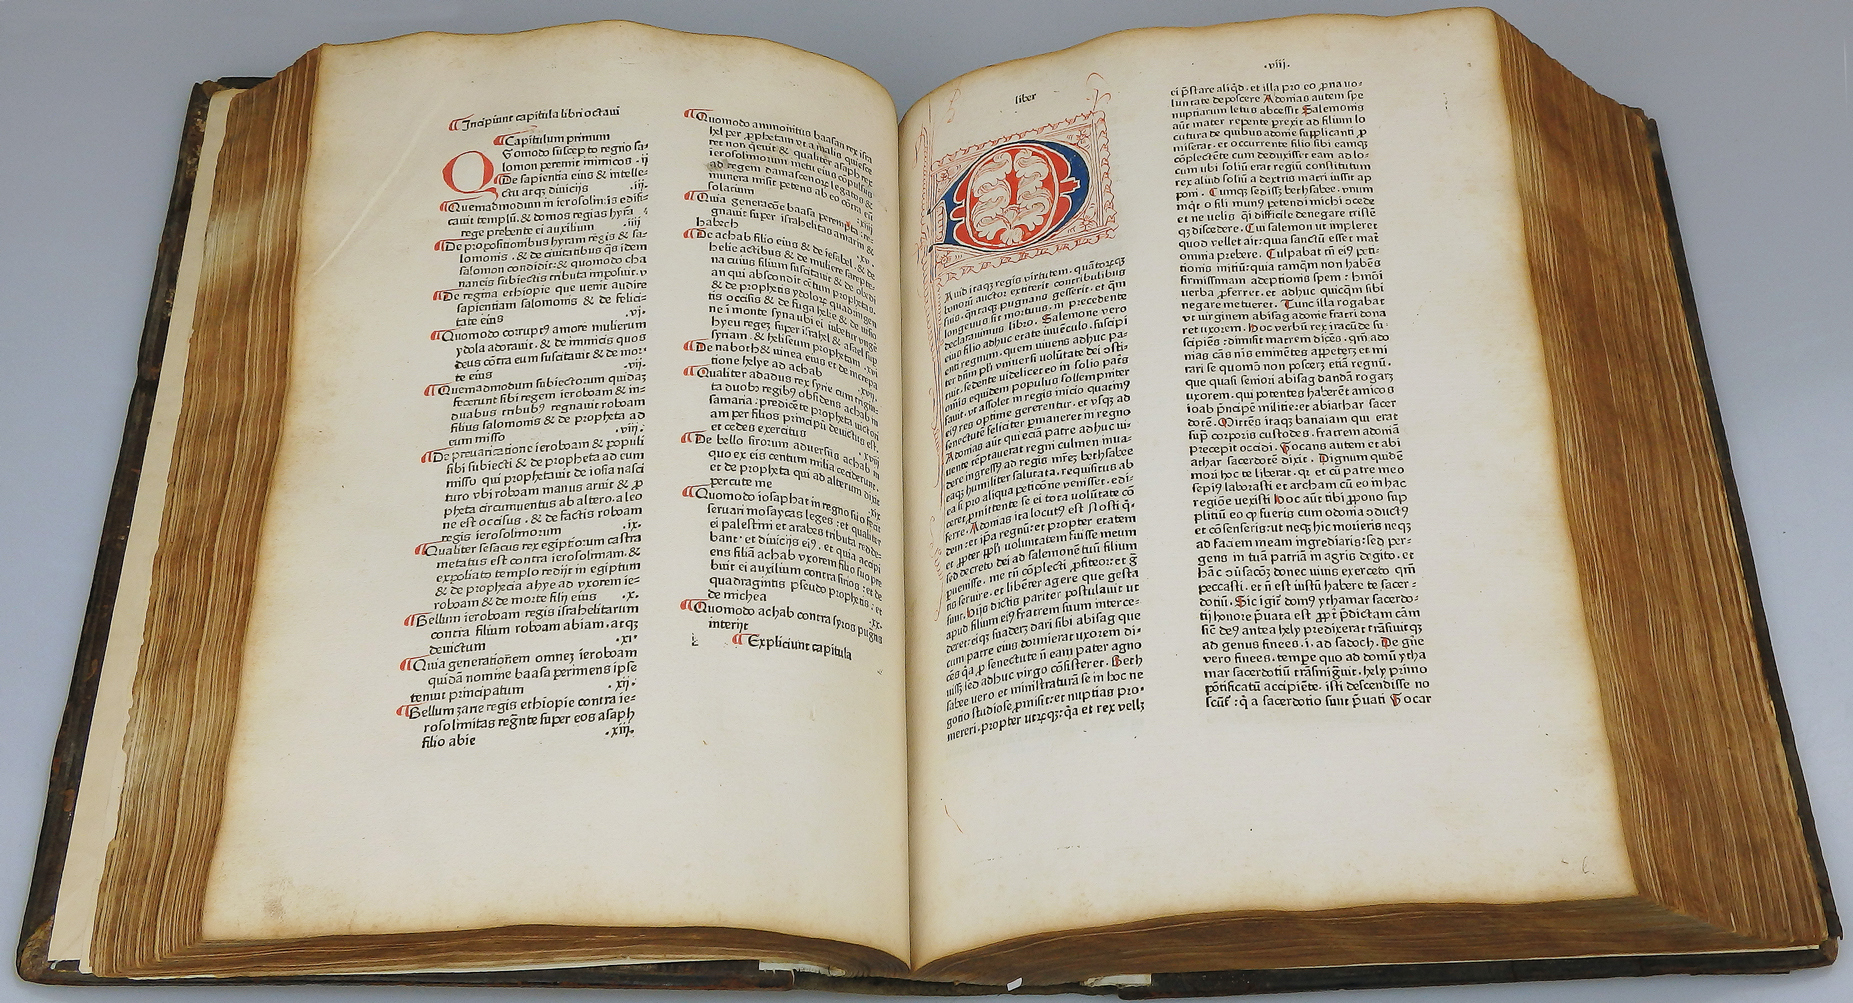 Incipiunt capitula libri octaui
Capitulum primum
Quomodo suscepto regno sa-
lomon peremit inimicos . ij
De sapientia eius & intelle-
ctu atqꝫ diuicijs .iij.
Quemadmodum in ierosolimis edifi-
cauit templū. & domos regias hyra
rege prebente ei auxilium .iiij
De propositionibus hyram regis & sa-
lomonis . & de ēnigmatibus q̄s idem
salomon condidit: & quomodo cha
naneis subiectis tributa imposuit. v
De regina ethiopie que venit audire
sapientiam salomonis & de felici-
tate eius .vj.
Quomodo corruptꝰ amore mulierum
ydola adorauit. & de inimicis quos
deus cōtra eum suscitauit & de mor-
te eius .vij.
Quemadmodum subiectorum quidaꝫ
fecerunt sibi regem ieroboam & in
duabus tribubꝰ regnauit roboam
filius salomonis & de propheta ad
eum misso .viij.
De preuaricatione ieroboam & populi
sibi subiecti & de propheta ad eum
misso qui prophetauit de iosia nasci
turo vbi roboam manus aruit & ꝓ
pheta circumuentus ab altero. a leo
ne est occisus . & de factis roboam
regis ierosolimorum .ix.
Qualiter sesacus rex egiptiorum castra
metatus est contra ierosolimam. &
expoliato templo redijt in egiptum
& de prophecia ahye ad vxorem ie-
roboam & de morte filij eius .x.
Bellum ieroboam regis israhelitarum
contra filium roboam abiam. atqꝫ
deuictum .xi.
Quia generationem omneꝫ ieroboam
quidā nomine baasa perimens ipse
tenuit principatum .xij.
Bellum zare regis ethiopie contra ie-
rosolimitas regn̄te super eos asaph
filio abie .xiij.
Quomodo ammonitus baasan rex isra
hel per ꝓphetam vt a malis quiesce
ret non q̄uit & qualiter asaph rex
ierosolimorum metu eius cōpulsus
ad regem damascenoꝝ legatos &
munera misit petens ab eo cōtra eū
solacium
Quia generacōe baasa perempta re-
gnauit super israhelitas amarin &
habech
De achab filio eius & de iesabel . & de
helie actibus & de muliere sarepte-
na cuius filium suscitauit & de obedi
an qui abscondit cētum prophetas.
& de prophetis ydoloꝝ quadringen
tis occisis & de fuga helie & de visio
ne i monte syna ubi ei iubetur vnge
hyeu regeꝫ super israhel & asael sup
syriam. & heliseum prophetam .xvi
De naboth & uinea eius et de increpa
tione helye ad achab .xvij.
Qualiter adadus rex syrie cum trigin-
ta duobꝫ regibꝰ obsidens achab in
samaria: predicēte propheta uictori
am per filios principū deuictus est.
et cedes exercitus
De bello sirorum aduersus achab in
quo ex eis centum milia ceciderunt .
et de propheta qui ad alterum dixit
percute me
Quomodo iosaphat in regno suo fecit
seruari mosaycas leges: et qualiter
ei palestini et arabes tributa redde-
bant. et diuicijs eiꝰ. et quia accipi
ens filiā achab vxorem filio suo pre
buit ei auxilium contra siros: et de
quadragintis pseudo prophetis: et
de michea .xx.
Quomodo achab contra syros pugna
interijt
Expliciunt capitula
liber
Dauid itaqꝫ regis virtutem. quātorūqꝫ
bonoru auctor extiterit contribulibus
suis. q̄ntaqꝫ pugnans gesserit. et q̄m
longeuus sit mortuus. in precedente
declarauimus libro. Salemone vero
eius filio adhuc etate iuuēculo. suscipi
enti regnum. quem uiuens adhuc pa-
ter dūm pl̄i vniuersi volūtate dei osti-
nuit. sedente uidelicet eo in solio patis
om̄is equidem populus sollempniter
fauit. vt assolet in regis inicio quatinꝰ
eiꝰ res optime gererentur. et vsqꝫ ad
senectutē feliciter ꝑmaneret in regno
Adonias aūt qui eciā patre adhuc ui-
uente reptauerat regni culmen inua-
dere ingressꝰ ad regis m̄reꝫ bethsabee
eaqꝫ humiliter salutata. requisitus ab
ea si pro aliqua peticōne venisset. edi-
ceret. ꝓmittente se ei tota uolūtate cō
ferre. Adonias ita locutꝰ est Nosti q̄-
dem: et ip̄a regnū: et propter etatem
et ꝓpter ppl̄i voluntatem fuisse meum
sed decreto dei ad salemonē tuū filium
peruenisse. me tn̄ cōplecti. ꝓfiteor: et ḡ
tis seruire. et libēter agere que gesta
sunt. Hijs dictis pariter postulauit ut
apud filium eiꝰ fratrem suum interce-
deret: eiqꝫ suaderꝫ dari sibi abisag que
cum patre eius dormierat uxorem di-
cēs q̄a ꝓ senectute n̄ eam pater agno
uisꝫ sed adhuc virgo cōsisteret. Beth
sabee vero et ministraturā se in hoc ne
gotio studiose ꝓmisit: et nuptias pro-
mereri. propter utrūqꝫ: q̄a et rex vellꝫ
.viij.
ei p̄stare aliq̄d. et illa pro eo ꝓna vo-
luntate deposcere Adonias autem spe
nuptiarum letus abcessit. Salemonis
aūt mater repente prexit ad filium lo
cutura de quibus adonie supplicanti ꝓ
miserat. et occurrente filio sibi eamqꝫ
cōplectēte cum deduxisser eam ad lo-
cum ubi soliū erat regiū constitutum
rex aliud soliū a dextris matri iussit ap
poni. Cumqꝫ sedisꝫ bethsabee. vnum
mq̄t o fili munꝰ petendi michi cōcede
et ne uelis q̄i difficile denegare tristē
qꝫ discedere. Cui salemon ut impleret
quod vellet ait: quia sanctū esset mat̄i
omnia prebere. Culpabat tn̄ eiꝰ peti-
tionis mitiū: quia tamq̄m non habēs
firmissimam adeptionis spem: hmōi
verba ꝓferret. et adhuc quicq̄m sibi
negare metueret. Tunc illa rogabat
vt virginem abisag adonie fratri dona
ret uxorem. Hoc verbū rex iracūde su-
scipiēs: dimisit matrem dicēs. qm̄ ado
nias cās nīs eminētes appeterꝫ et mi
rari se quomō non posceꝫ etiā regnū.
que quasi seniori abisag dandā rogaꝫ
uxorem. qui potentes haberet amicos
ioab p̄ncipē militie: et abiathar sacer
dotē. Mittēs itaqꝫ banaiam qui erat
sup̄ corporis custodes. fratrem adoniā
precepit occidi. Vocans autem et abi
athar sacerdotē dixit. Dignum quidē
mori hoc te liberat. qꝛ et cū patre meo
sepiꝰ laborasti et archam cū eo in hac
regiōe uexisti Hoc aūt tibi ꝓpono sup
plitiū eo ꝙ fueris cum odonia ꝯductꝰ
et cōsenseris: ut neqꝫ hic moueris neqꝫ
ad faciem meam ingrediaris: sed per-
gens in tuā patriā in agris degito. et
hāc ꝯuisacōꝫ donec uiuis exerceto qm̄
peccasti. et n̄ est iustū habere te sacer-
dotiū. Sic igit̄ domꝰ ythamar sacerdo-
tij honore p̄uata est ꝓut p̄dictam cām
sic̄ deꝰ antea hely predixerat trāsiuitqꝫ
ad genus finees. i. ad sadoch. De gn̄e
vero finees. tempore quo ad domū ytha
mar sacerdotiū trāsmigͥuit. hely primo
pōtificatū accipiēte. isti descendisse no
scūt̄: q̄ a sacerdotio sunt p̄uati Vocar